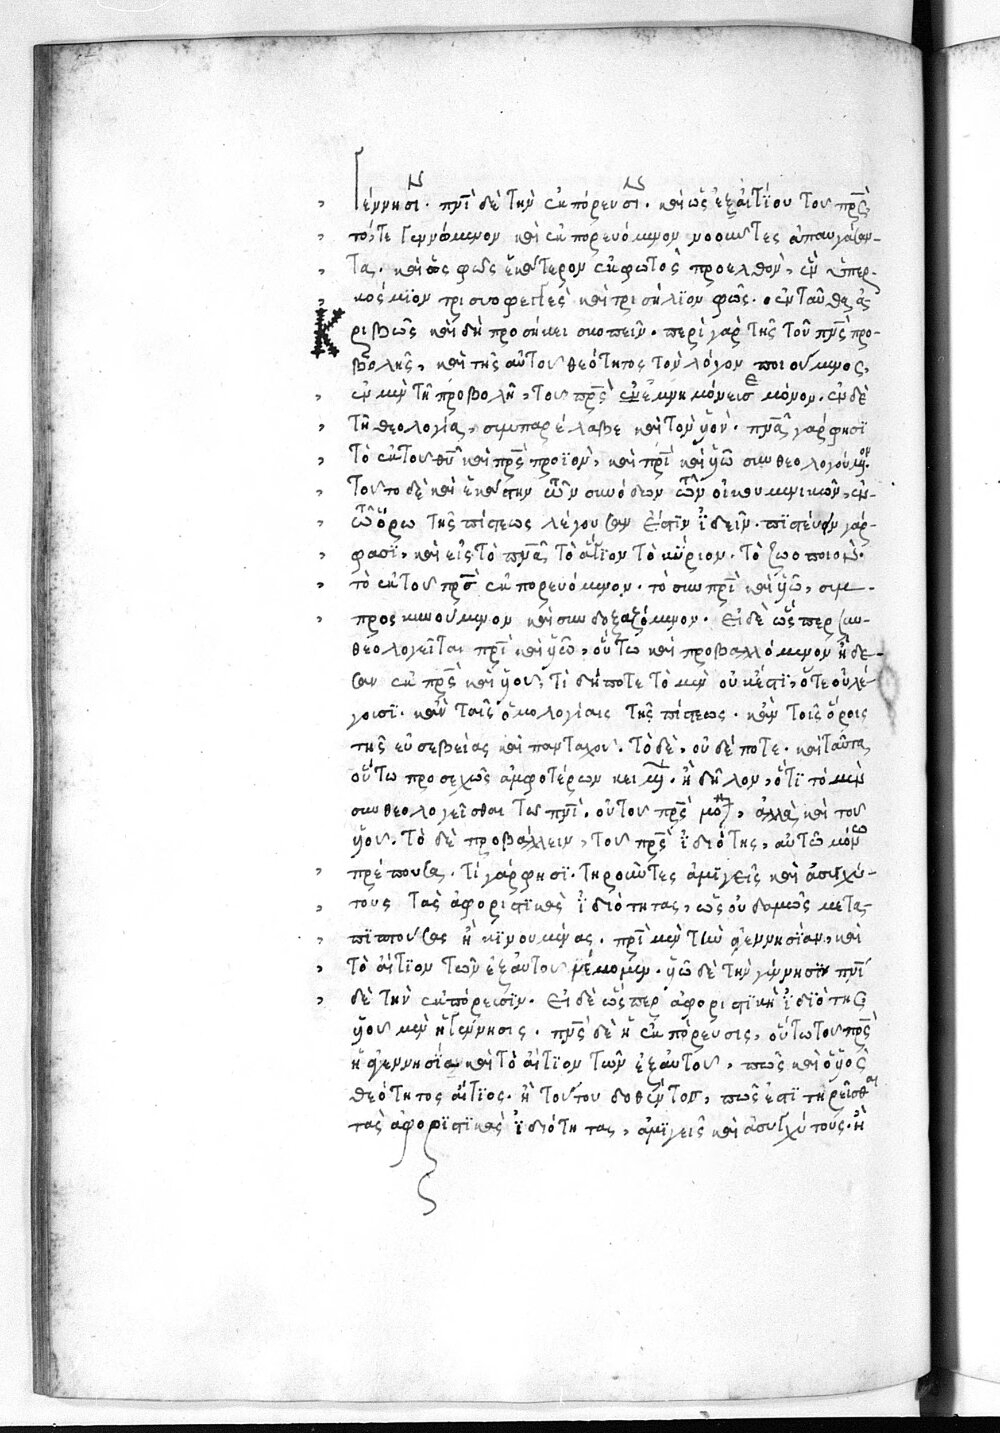 γέννησιν. πνι δὲ τὴν ἐκπόρευσιν. καὶ ὡς ἐξ αἰτίου τοῦ πρς
τό, τε γεννώμενον καὶ ἐκπορευόμενον νοοῦντες ἀπαυγάζον-
τα. καὶ ὡς φῶς ἑκάτερον ἐκ φωτὸς προελθὸν, ἓν ὑπερ-
κόσμϊον τρισυοφεγγὲς καὶ τρισήλϊον φῶς. ὁ ἐνταῦθα ἀ
κριβῶς καὶ δὴ προσήκει σκοπεῖν. περὶ γὰρ τῆς τοῦ πνς προ-
βολῆς, καὶ τῆς αὐτοῦ θεότητος τὸν λόγον ποιούμενος,
ἐν μὲν τῇ προβολῇ, τοῦ πρς ἐμνημόνευσε μόνου. ἐν δὲ
τῇ θεολογίᾳ, συμπαρέλαβε καὶ τὸν υἱόν. πνα γάρ φησϊ
τὸ ἐκ τοῦ θυ καὶ πρς προϊὸν, καὶ πρι καὶ υἱῷ συνθεολογούμενον.
τοῦτο δὲ καὶ ἑκάστην τῶν συνόδων τῶν οἰκουμενικῶν, ἐν
τῷ ὅρῳ τῆς πίστεως λέγουσαν ἔστϊν ἰδεῖν. πϊστεύομεν γάρ
φασϊ, καὶ εἰς τὸ πνα τὸ ἅγϊον τὸ κύριον. τὸ ζωοποιόν.
τὸ ἐκ τοῦ πρς ἐκπορευόμενον. τὸ σὺν πρι καὶ υἱῷ, συμ-
προσκυνούμενον καὶ συνδοξαζόμενον. εἰ δὲ ὥσπερ συν-
θεολογεῖται πρι καὶ υἱῷ, οὕτω καὶ προβαλλόμενον ᾔδε-
σαν ἐκ πρς καὶ υἱοῦ, τί δήποτε τὸ μὲν οὐκ ἔστϊν, ὅτε οὐ λέ-
γουσϊ. κἂν ταῖς ὁμολογίαις τῆς πίστεως. κἂν τοῖς ὅροις
τῆς εὐσεβείας καὶ πανταχοῦ. τὸ δὲ, οὐδέποτε. καὶ ταῦτα
οὕτω προσεχῶς ἀμφοτέρων κειμένων. ἢ δῆλον, ὅτϊ τὸ μὲν
συνθεολογεῖσθαι τῷ πνι, οὐ τοῦ πρς μόνου, ἀλλὰ καὶ τοῦ
υἱοῦ. τὸ δὲ προβάλλειν, τοῦ πρς ἰδιότης, αὐτῷ μόνῳ
πρέπουσα. τί γάρ φησϊ. τηροῦντες ἀμϊγεῖς καὶ ἀσυγχύ-
τους τὰς ἀφοριστϊκὰς ἰδιότητας, ὡς οὐδαμῶς μετα-
πϊπτούσας ἢ κϊνουμένας. πρι μὲν τὴν ἀγεννησίαν, καὶ
τὸ αἴτϊον τῶν ἐξ αὐτοῦ νέμομεν. υἱῷ δὲ τὴν γέννησϊν πνι
δὲ τὴν ἐκπόρευσϊν. εἰ δὲ ὥσπερ ἀφοριστϊκὴ ἰδιότης
υἱοῦ μὲν ἡ γέννησις. πνς δὲ ἡ ἐκπόρευσις, οὕτω τοῦ πρς
ἡ ἀγεννησία καὶ τὸ αἴτϊον τῶν ἐξ αὐτοῦ, πῶς καὶ ὁ υἱὸς
θεότητος αἴτϊος. ἢ τούτου δοθέντος, πῶς ἔστϊ τηρεῖσθαι
τὰς ἀφορϊστϊκὰς ἰδιότητας, ἀμϊγεῖς καὶ ἀσυγχύτους. ἢ